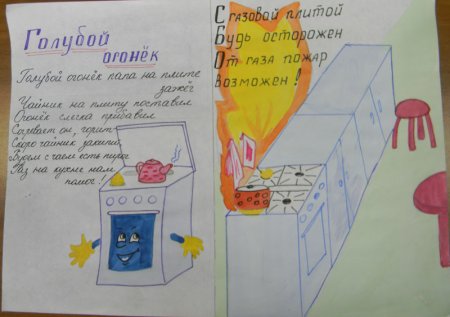 Голубой
огонёк
Голубой огонёк папа на плите
зажёг
Чайник на плиту поставил
Огонёк слегка прибавил
он горит
Скоро чайник закипит,
Будем с чаем есть пирог
Газ на кухне нам
помог!
С газовой плитой
Будь осторожен
От газа пожар
возможен!